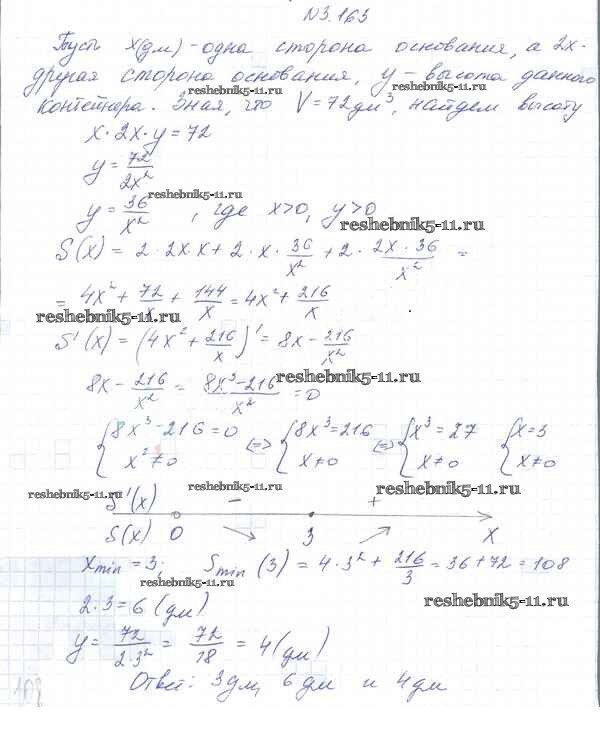 N3.163
Пусть x(дм) - одна сторона основания, а 2x-
другая сторона основания, y - высота данного
reshebnik5-11.ru
контейнера. Зная, что V=72дм³, найдем высоту
reshebnik5-11.ru
x·2x·y=72
y=72/2x²
reshebnik5-11.ru
y=36/x² , где x>0, y>0
reshebnik5-11.ru
S(x) = 2·2x·x+2·x·36/x²+2·2x·36/x² =
= 4x²+72/x+144/x=4x²+216/x
reshebnik5-11.ru
S'(x) = (4x²+216/x)'=8x-216/x²
reshebnik5-11.ru
8x-216/x²=8x³-216/x²=0
{8x³-216=0 (=) {8x³=216 (=) {x³=27 {x=3
x²≠0 x≠0 x≠0 x≠0
reshebnik5-11.ru reshebnik5-11.ru reshebnik5-11.ru
S'(x) - +
S(x) 0 3 x
xmin=3; Smin(3)=4·3²+216/3=36+72=108
reshebnik5-11.ru
2·3=6(дм)
reshebnik5-11.ru
y=72/2·3²=72/18=4(дм)
Ответ: 3дм, 6дм и 4дм
108